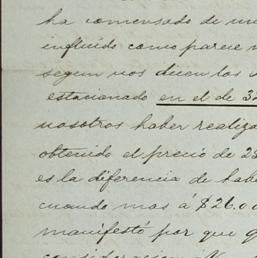 ha comensado de un
influido como parece
segun nos dicen los
estacionado en el de 32
nosotros haber realiza
obtenido el precio de 25
es la diferencia de hab
cuando mas á $26.00
manifestó por que q